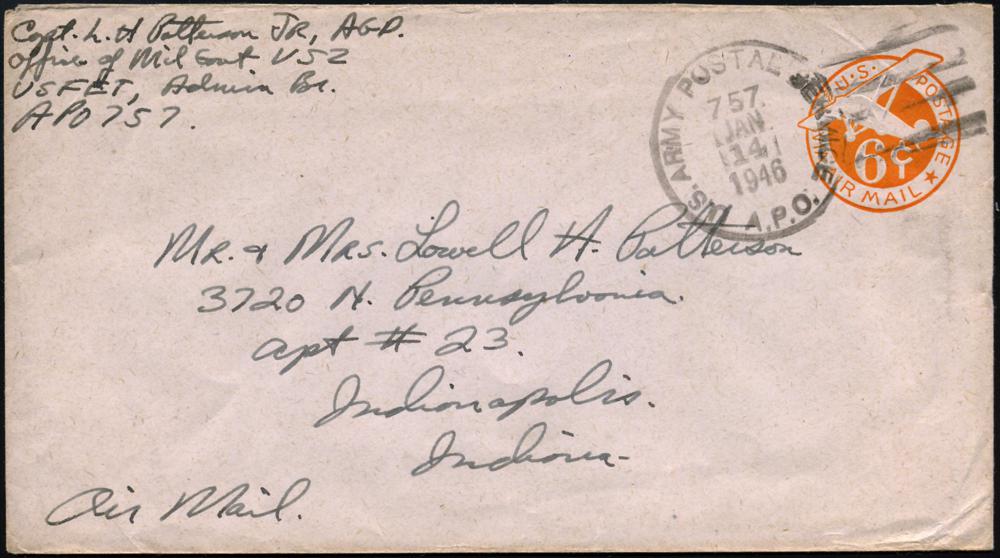 Capt. L. H Patterson JR, AGD.
Office of Mil Govt USZ
USFET, Admin Br.
APO 757.
U.S. ARMY POSTAL SERVICE
757
JAN
14
1946
A.P.O.
U.S. POSTAGE
6¢
AIR MAIL
Mr. & Mrs. Lowell H. Patterson
3720 N. Pennsylvania.
apt # 23.
Indianapolis.
Indiana-
Air Mail.